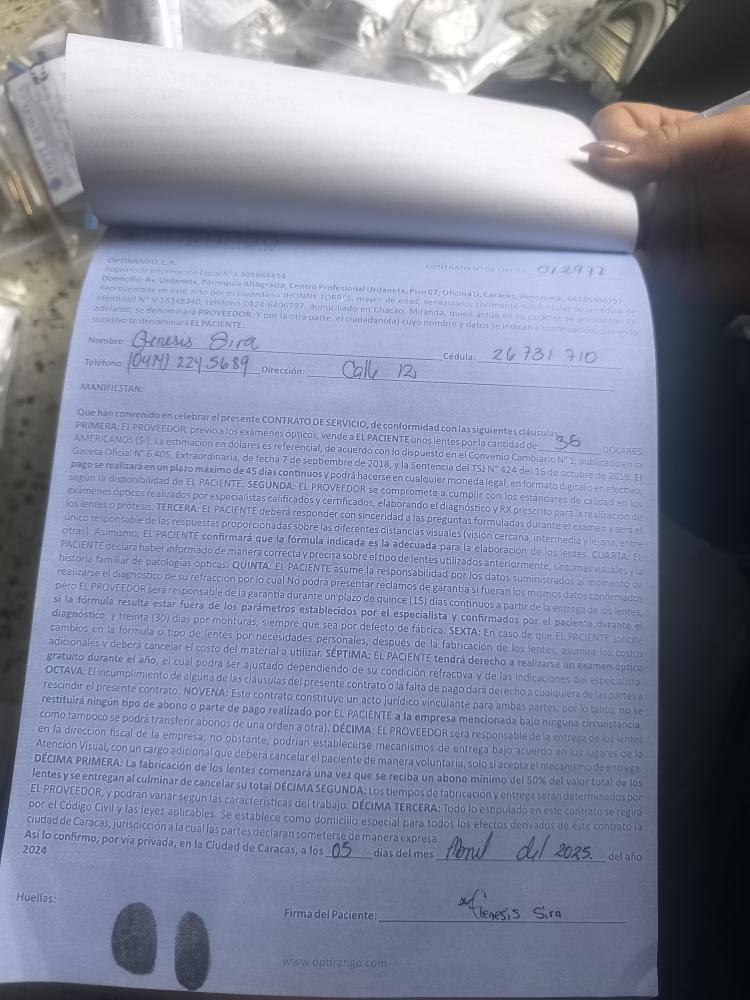 OPTIRANGO, C.A. CONTRATO N° DE ORDEN: 012971
Registro de Información Fiscal N° J-501868454
Domicilio: Av. Urdaneta, Parroquia Altagracia, Centro Profesional Urdaneta, Piso 07, Oficina D, Caracas, Venezuela, 04246406797
Representada en este acto por el ciudadano JHONNY TORRES, mayor de edad, venezolano, civilmente hábil, titular de la cédula de
identidad N° V-18348340, teléfono 0424-6406797, domiciliado en Chacao, Miranda, quien actúa en su carácter de presidente. En
adelante, se denominará PROVEEDOR. Y por la otra parte, el ciudadano(a) cuyo nombre y datos se indican a continuación, que en lo
sucesivo se denominará EL PACIENTE:
Nombre: Genesis Sira Cédula: 26 731 710
Teléfono: (0414) 224 5689 Dirección: Calle 12
MANIFIESTAN:
Que han convenido en celebrar el presente CONTRATO DE SERVICIO, de conformidad con las siguientes cláusulas:
PRIMERA: EL PROVEEDOR, previo a los exámenes ópticos, vende a EL PACIENTE unos lentes por la cantidad de 35 DÓLARES
AMERICANOS ($-). La estimación en dólares es referencial, de acuerdo con lo dispuesto en el Convenio Cambiario N° 1, publicado en la
Gaceta Oficial N° 6.405, Extraordinaria, de fecha 7 de septiembre de 2018, y la Sentencia del TSJ N° 424 del 16 de octubre de 2019. El
pago se realizará en un plazo máximo de 45 días continuos y podrá hacerse en cualquier moneda legal, en formato digital o en efectivo,
según la disponibilidad de EL PACIENTE. SEGUNDA: EL PROVEEDOR se compromete a cumplir con los estándares de calidad en los
exámenes ópticos realizados por especialistas calificados y certificados, elaborando el diagnóstico y RX prescrito para la realización de
los lentes o prótesis. TERCERA: EL PACIENTE deberá responder con sinceridad a las preguntas formuladas durante el examen y será el
único responsable de las respuestas proporcionadas sobre las diferentes distancias visuales (visión cercana, intermedia y lejana, entre
otras). Asimismo, EL PACIENTE confirmará que la fórmula indicada es la adecuada para la elaboración de los lentes. CUARTA: EL
PACIENTE declara haber informado de manera correcta y precisa sobre el tipo de lentes utilizados anteriormente, síntomas visuales y la
historia familiar de patologías ópticas. QUINTA: EL PACIENTE asume la responsabilidad por los datos suministrados al momento de
realizarse el diagnóstico de su refracción por lo cual No podrá presentar reclamos de garantía si fueran los mismos datos confirmados
pero EL PROVEEDOR será responsable de la garantía durante un plazo de quince (15) días continuos a partir de la entrega de los lentes,
si la fórmula resulta estar fuera de los parámetros establecidos por el especialista y confirmados por el paciente durante el
diagnóstico, y treinta (30) días por monturas, siempre que sea por defecto de fábrica. SEXTA: En caso de que EL PACIENTE solicite
cambios en la fórmula o tipo de lentes por necesidades personales, después de la fabricación de los lentes, asumirá los costos
adicionales y deberá cancelar el costo del material a utilizar. SÉPTIMA: EL PACIENTE tendrá derecho a realizarse un examen óptico
gratuito durante el año, el cual podrá ser ajustado dependiendo de su condición refractiva y de las indicaciones del especialista.
OCTAVA: El incumplimiento de alguna de las cláusulas del presente contrato o la falta de pago dará derecho a cualquiera de las partes a
rescindir el presente contrato. NOVENA: Este contrato constituye un acto jurídico vinculante para ambas partes; por lo tanto, no se
restituirá ningún tipo de abono o parte de pago realizado por EL PACIENTE a la empresa mencionada bajo ninguna circunstancia,
como tampoco se podrá transferir abonos de una orden a otra). DÉCIMA: EL PROVEEDOR será responsable de la entrega de los lentes
en la dirección fiscal de la empresa; no obstante, podrían establecerse mecanismos de entrega bajo acuerdo en los lugares de la
Atención Visual, con un cargo adicional que deberá cancelar el paciente de manera voluntaria, solo si acepta el mecanismo de entrega.
DÉCIMA PRIMERA: La fabricación de los lentes comenzará una vez que se reciba un abono mínimo del 50% del valor total de los
lentes y se entregan al culminar de cancelar su total DÉCIMA SEGUNDA: Los tiempos de fabricación y entrega serán determinados por
EL PROVEEDOR, y podrán variar según las características del trabajo. DÉCIMA TERCERA: Todo lo estipulado en este contrato se regirá
por el Código Civil y las leyes aplicables. Se establece como domicilio especial para todos los efectos derivados de este contrato la
ciudad de Caracas, jurisdicción a la cual las partes declaran someterse de manera expresa.
Así lo confirmo, por vía privada, en la Ciudad de Caracas, a los 05 días del mes Abril del 2025. del año
2024
Huellas:
Firma del Paciente: Genesis Sira
www.optirango.com